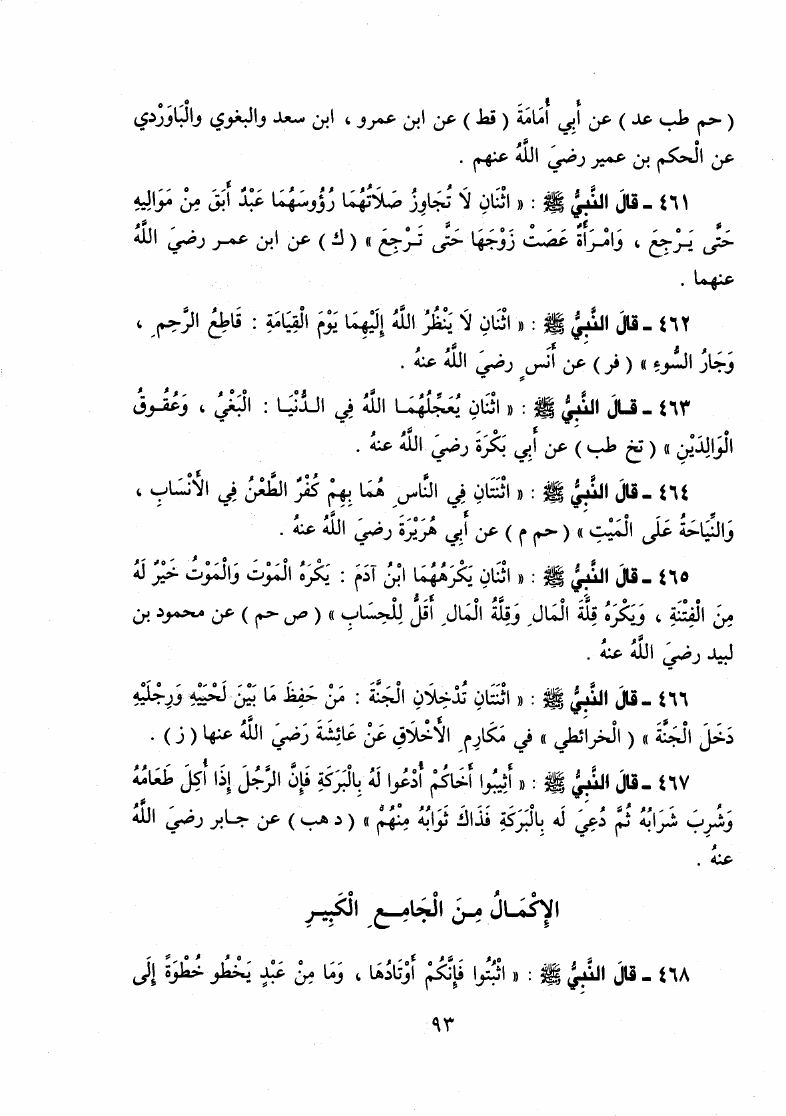 ( حم طب عد ) عن أَبي أُمَامَةَ ( قط ) عن ابن عمرو ، ابن سعد والبغوي والْبَاوَرْدي
عن الْحكم بن عمير رضيَ اللَّهُ عنهم .
٤٦١ ـ قالَ النَّبيُّ ﷺ : « اثْنَانِ لاَ تُجَاوِزُ صَلاَتُهُمَا رُؤُوسَهُمَا عَبْدٌ أَبَقَ مِنْ مَوَالِيهِ
حَتَّى يَـرْجِعَ ، وَامْـرَأَةٌ عَصَتْ زَوْجَهَا حَتَّى تَـرْجِعَ » ( ك ) عن ابن عمـر رضيَ اللَّهُ
عنهما .
٤٦٢ ـ قالَ النَّبيُّ ﷺ : « اثْنَانِ لاَ يَنْظُرُ اللَّهُ إِلَيْهِمَا يَوْمَ الْقِيَامَةِ : قَاطِعُ الرَّحِمِ ،
وَجَارُ السُّوءِ » ( فر ) عن أَنَسٍ رضيَ اللَّهُ عنهُ .
٤٦٣ ـ قـالَ النَّبيُّ ﷺ : « اثْنَانِ يُعَجِّلُهُمَـا اللَّهُ فِي الـدُّنْيَـا : الْبَغْيُ ، وَعُقُـوقُ
الْوَالِدَيْنِ » ( تخ طب ) عن أَبي بَكْرَةَ رضيَ اللَّهُ عنهُ .
٤٦٤ ـ قالَ النَّبيُّ ﷺ : « اثْنَتَانِ فِي النَّاسِ هُمَا بِهِمْ كُفْرٌ الطَّعْنُ فِي الأَنْسَابِ ،
وَالنِّيَاحَةُ عَلَى الْمَيِّتِ » ( حم م ) عن أَبي هُرَيْرَةَ رضيَ اللَّهُ عنهُ .
٤٦٥ ـ قالَ النَّبيُّ ﷺ : « اثْنَانِ يَكْرَهُهُمَا ابْنُ آدَمَ : يَكْرَهُ الْمَوْتَ وَالْمَوْتُ خَيْرٌ لَهُ
مِنَ الْفِتْنَةِ ، وَيَكْرَهُ قِلَّةَ الْمَالِ وَقِلَّةُ الْمَالِ أَقَلُّ لِلْحِسَابِ » ( ص حم ) عن محمود بن
لبيد رضيَ اللَّهُ عنهُ .
٤٦٦ ـ قالَ النَّبيُّ ﷺ : « اثْنَتَانِ تُدْخِلاَنِ الْجَنَّةَ : مَنْ حَفِظَ مَا بَيْنَ لَحْيَيْهِ وَرِجْلَيْهِ
دَخَلَ الْجَنَّةَ » ( الْخرائطي » في مَكَارِمِ الأَخْلاَقِ عَنْ عَائِشَةَ رَضيَ اللَّهُ عنها ( ز ) .
٤٦٧ ـ قالَ النَّبيُّ ﷺ : « أَثِيبُوا أَخَاكُمْ أُدْعُوا لَهُ بِالْبَرَكَةِ فَإِنَّ الرَّجُلَ إِذَا أُكِلَ طَعَامُهُ
وَشُرِبَ شَرَابُهُ ثُمَّ دُعِيَ لَه بِالْبَرَكَةِ فَذَاكَ ثَوَابُهُ مِنْهُمْ » ( د هب ) عن جـابر رضيَ اللَّهُ
عنهُ .
الإِكْمَـالُ مِـنَ الْجَامِـعِ الْكَبِيـرِ
٤٦٨ ـ قالَ النَّبيُّ ﷺ : « اثْبُتُوا فَإِنَّكُمْ أَوْتَادُهَا ، وَمَا مِنْ عَبْدٍ يَخْطُو خُطْوَةً إِلَى
٩٣